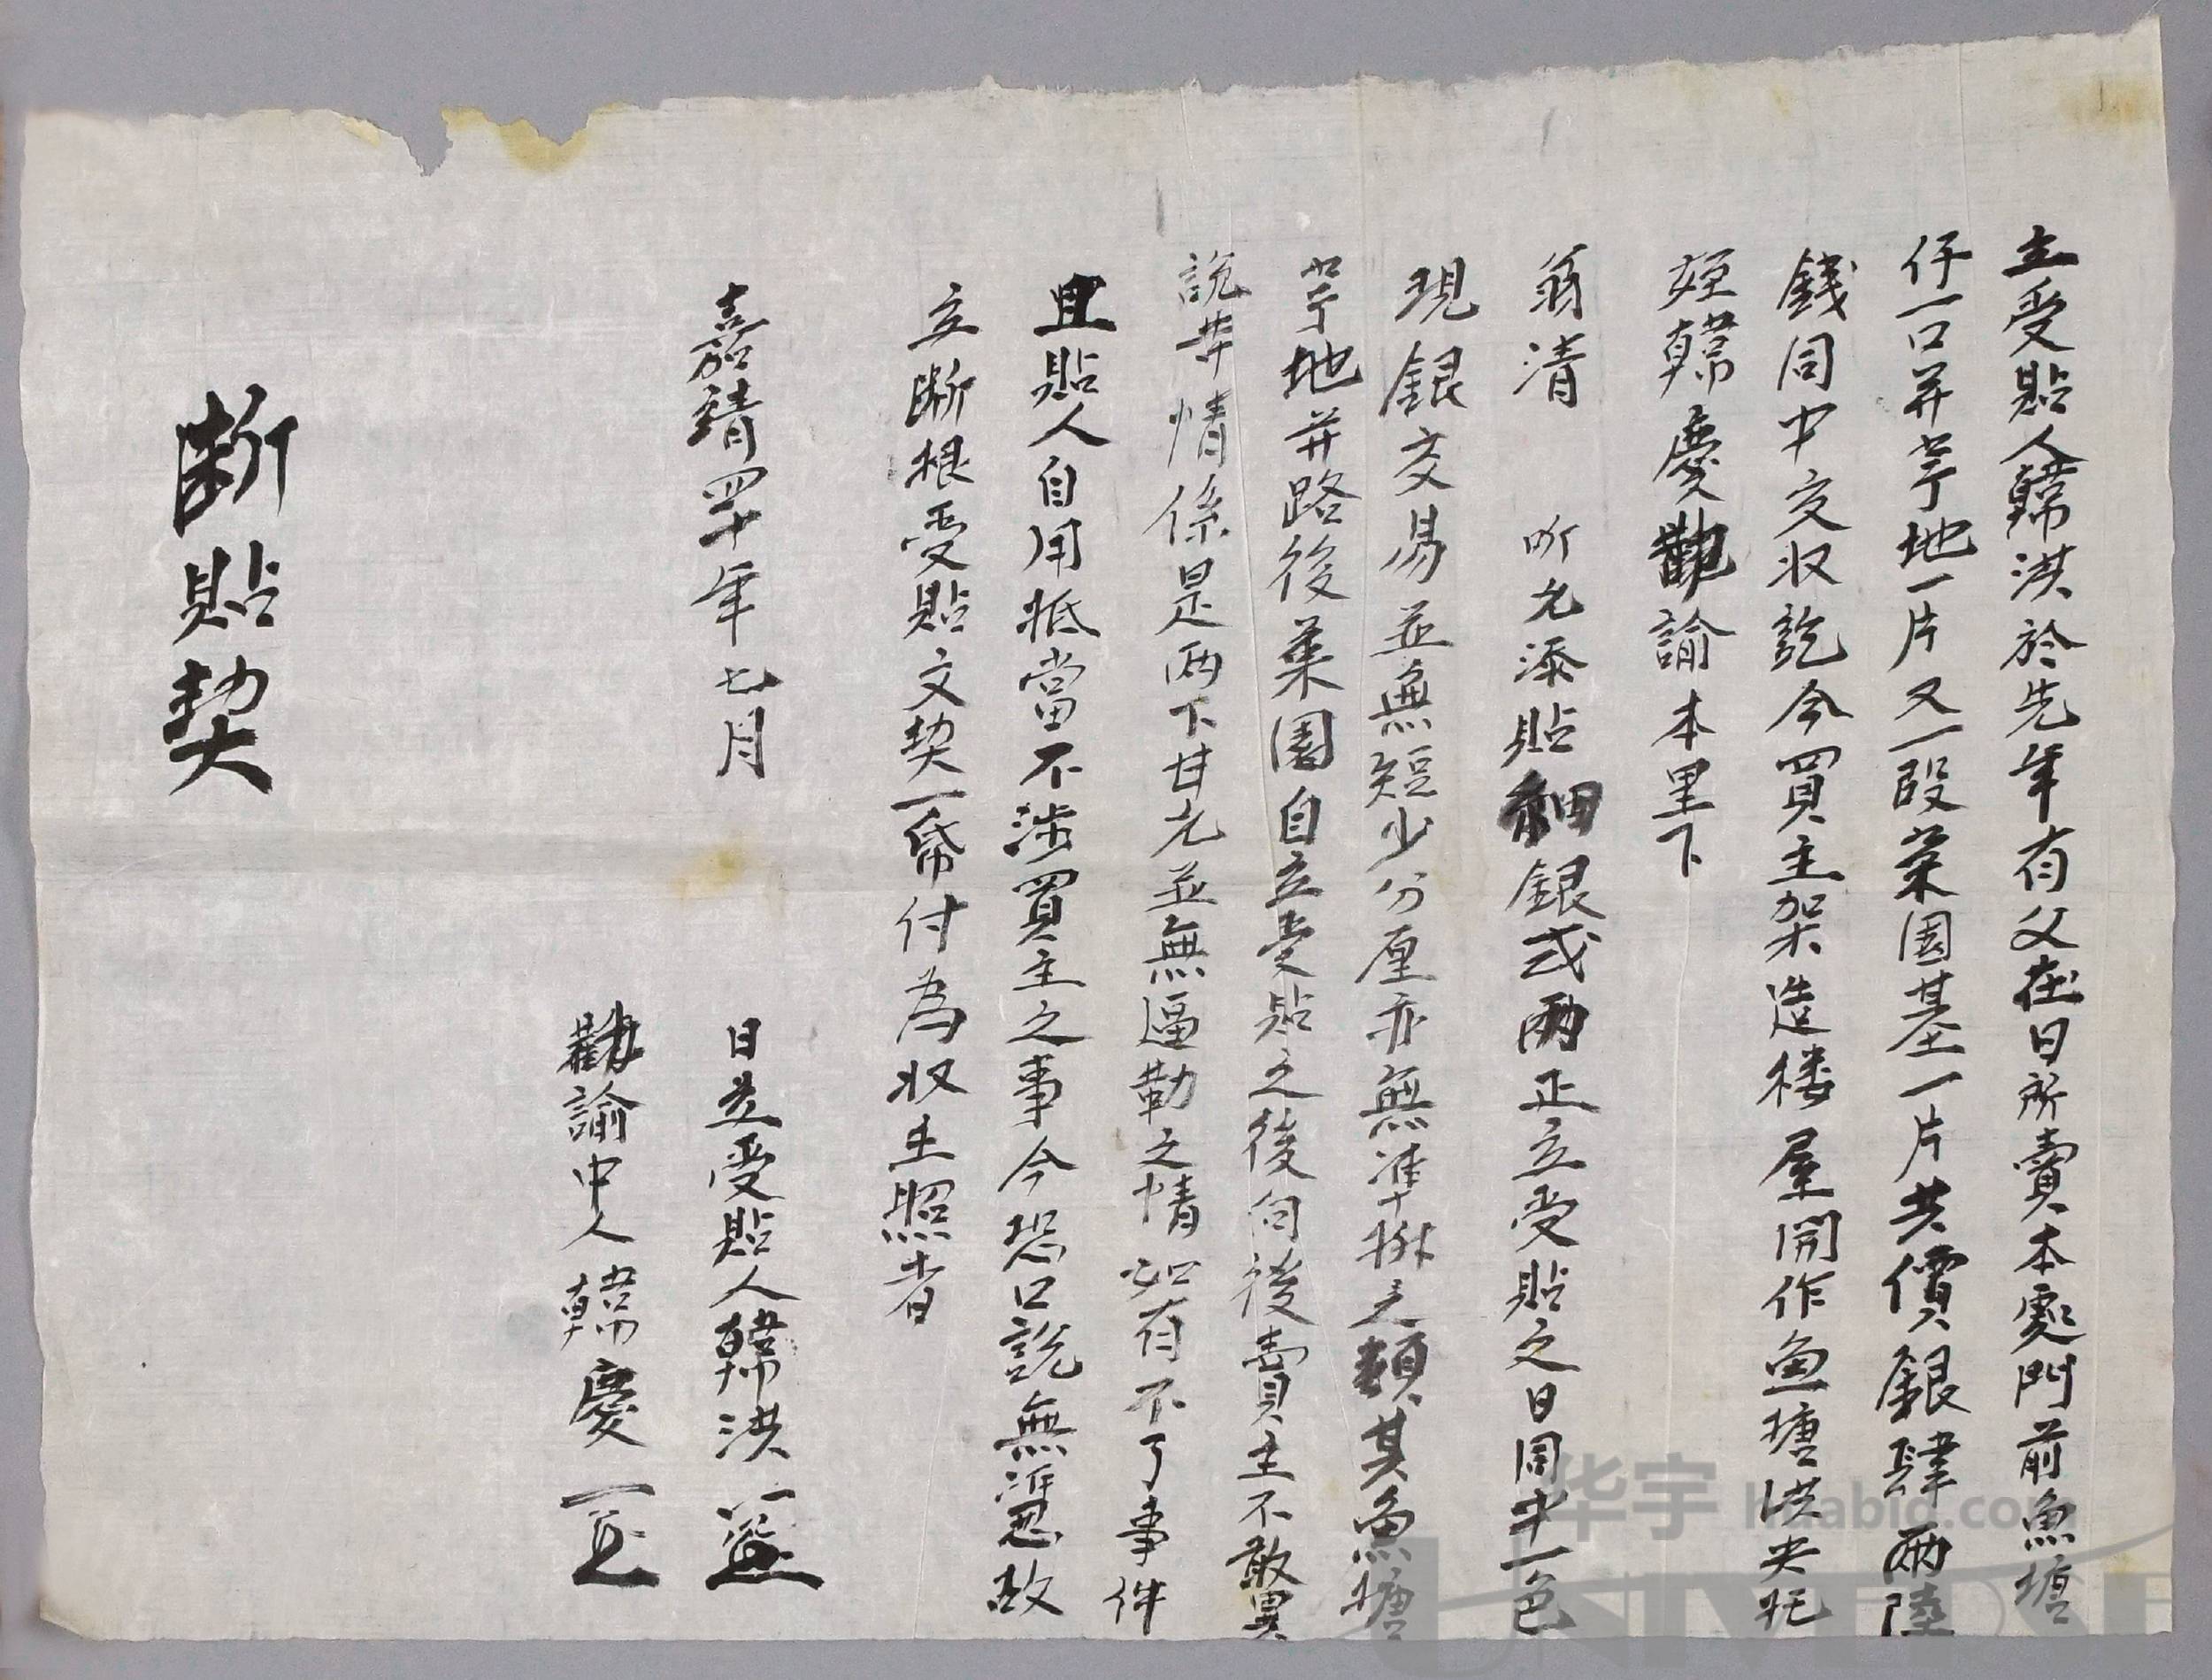 立受貼人韓洪於先年有父在日所賣本處門前魚塘
仔一口并亭地一片又一段菜園基一片共價銀肆兩陸
錢同中交收訖今買主架造楼屋開作魚塘洪央托
姪韓慶勸諭本里下
翁清 所允添貼細銀弍兩正立受貼之日同中一色
現銀交易並無短少分厘亦無準折之類其魚塘
亭地并路後菜園自立受貼之後向後賣主不敢異
說其情係是兩下甘允並無逼勒之情如有不了事件
且貼人自用抵當不涉買主之事今恐口說無憑故
立断根受貼文契一帋付為收主照者
嘉靖四十年七月 日立受貼人韓洪
勸諭中人韓慶
断貼契
华宇 huabid.com
UNIVERSE